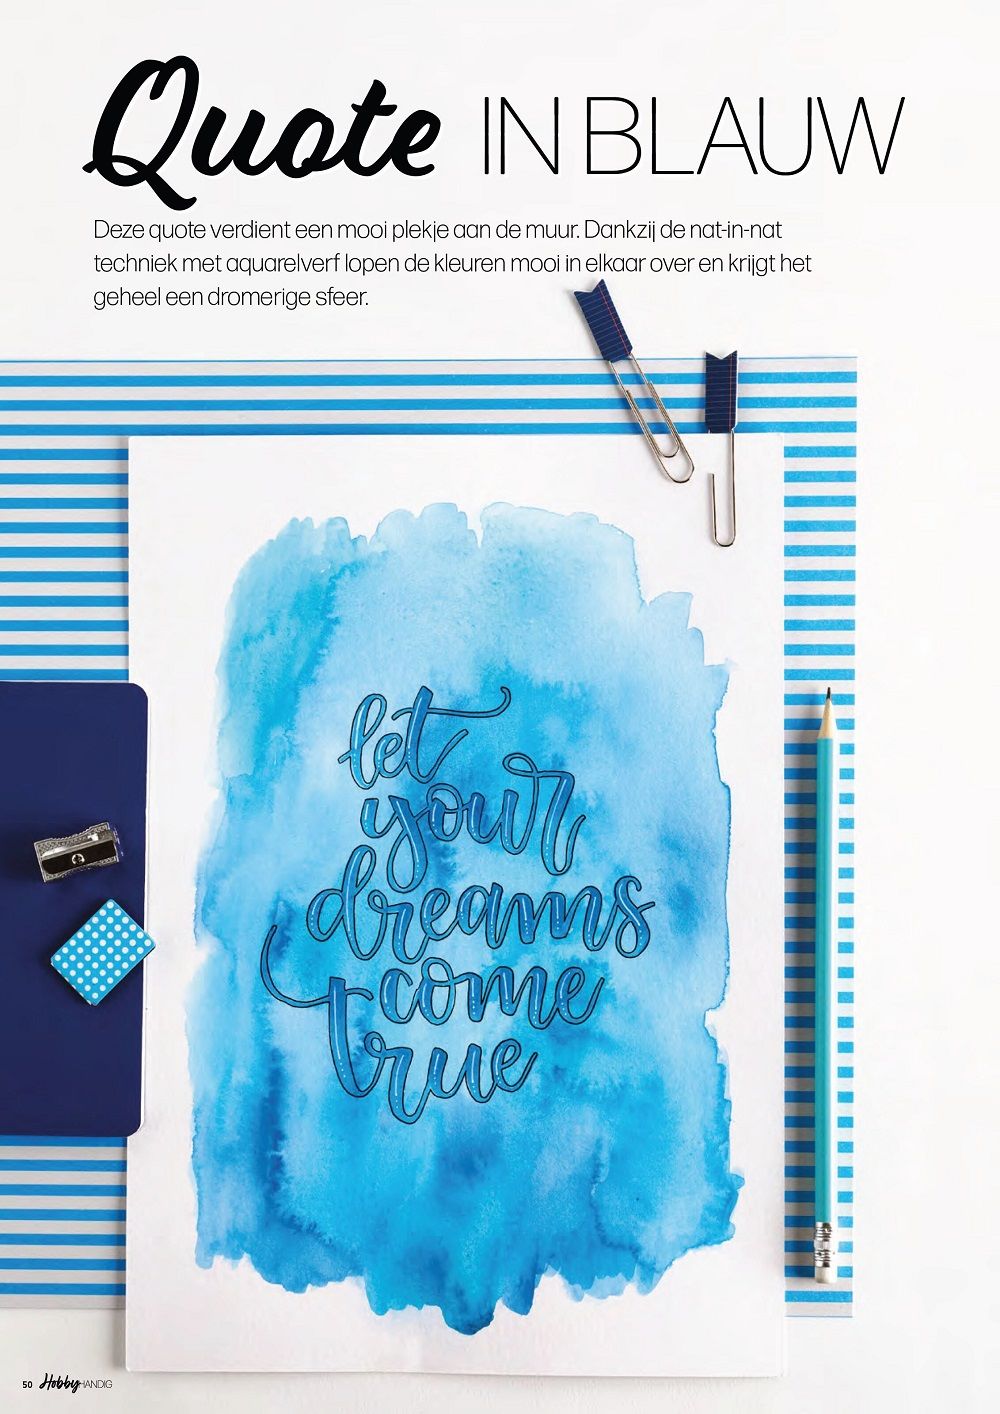 Quote IN BLAUW
Deze quote verdient een mooi plekje aan de muur. Dankzij de nat-in-nat
techniek met aquarelverf lopen de kleuren mooi in elkaar over en krijgt het
geheel een dromerige sfeer.
let
your
dreams
come
true
50 HobbyHANDIG